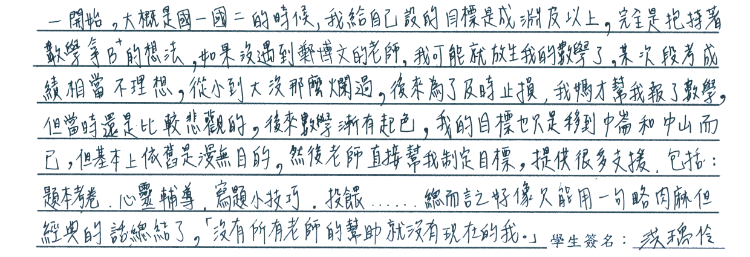 一開始,大概是國一國二的時候,我給自己設的目標是成淵及以上,完全是抱持著
數學拿B⁺的想法,如果沒遇到鄭博文的老師,我可能就放生我的數學了,某次段考成
績相當不理想,從小到大沒那麼爛過,後來為了及時止損,我媽才幫我報了數學,
但當時還是比較悲觀的,後來數學漸有起色,我的目標也只是移到中崙和中山而
已,但基本上依舊是漫無目的,然後老師直接幫我制定目標,提供很多支援.包括:
題本考卷.心靈輔導.寫題小技巧.投餵……總而言之好像只能用一句略肉麻但
經典的話總結了,「沒有所有老師的幫助就沒有現在的我。」學生簽名: